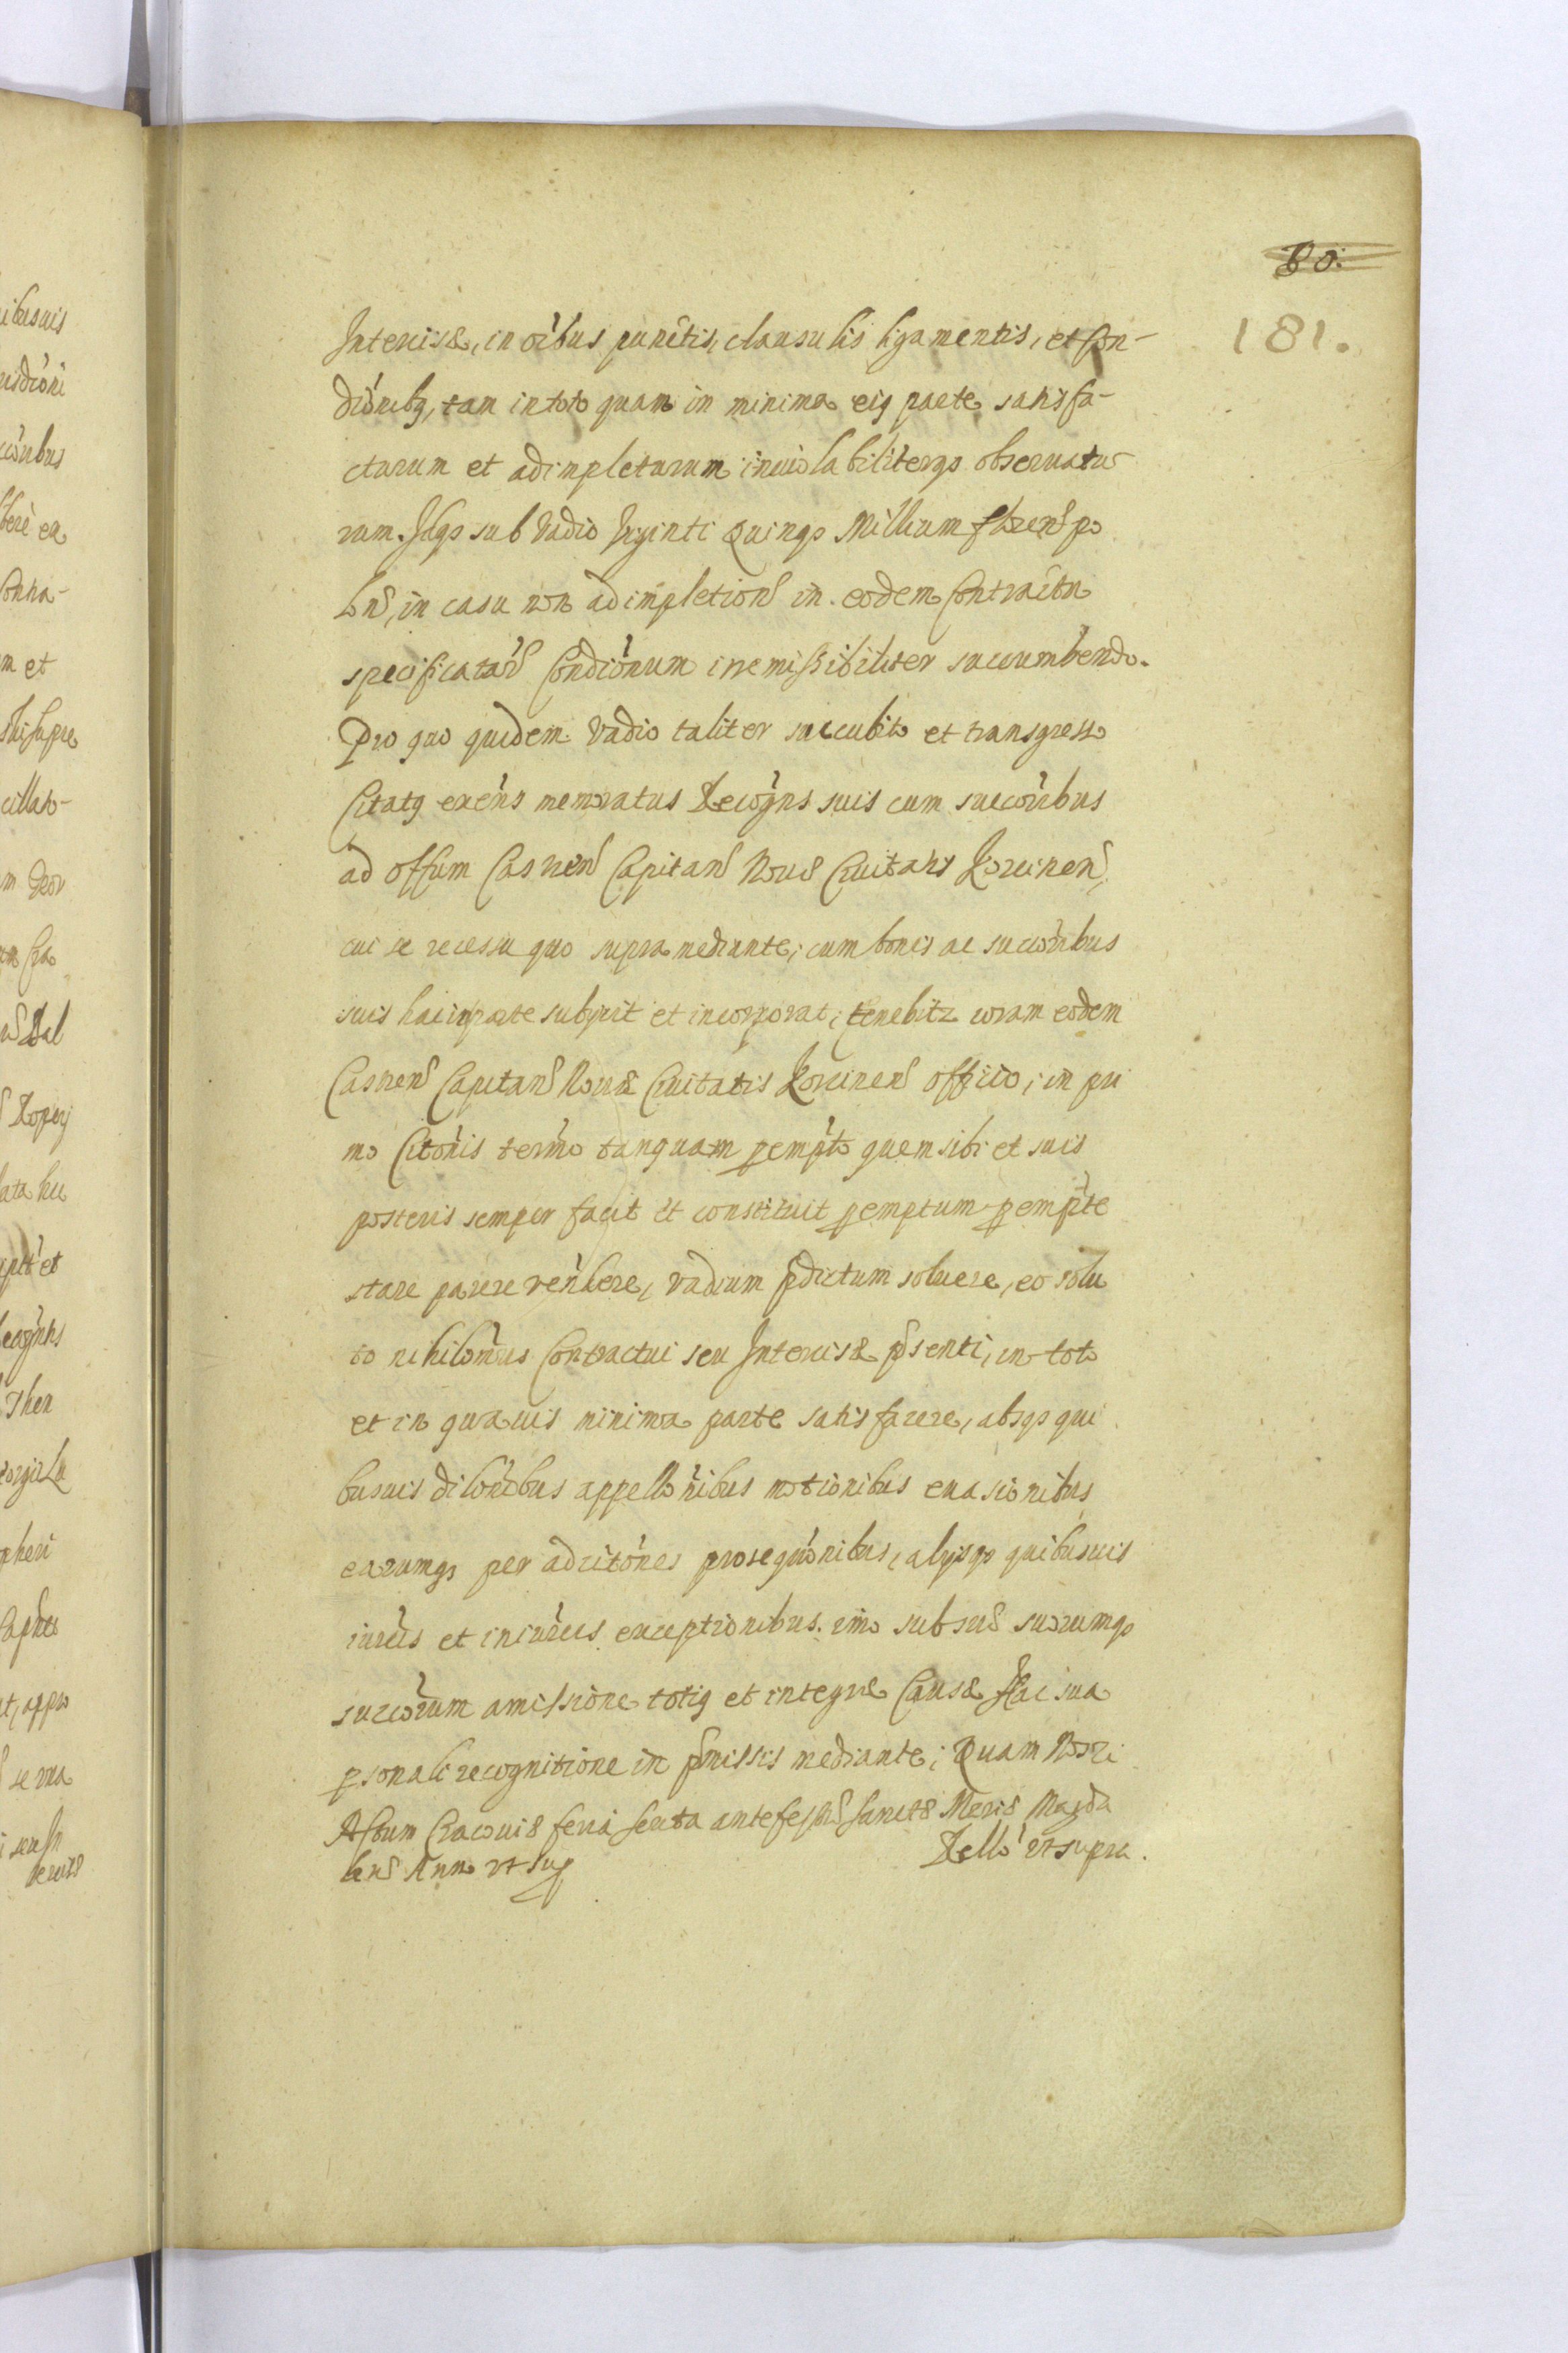 80.
181.
Intercisæ, in oi̇bus punctis, clausulis ligamentis, et Con-
diōnibq, tam in toto quam in minima eiq parte satisfa-
cturum et adimpleturum inviolabiliterqs observatu-
rum. Idqs sub Vadio Viginti Quinqs Millium floren po
Ln, in casu non adimpletion in eodem Contractu
specificatar Condiōnum irremissibiliter succumbendo.
Pro quo quidem Vadio taliter succubito et transgresso
Citatq exens memoratus Recogns suis cum succoribus
ad offum Castren Capitan Novæ Civitatis Korcinen,
cui se recessu quo supra mediante, cum bonis ac succoribus
suis hac in parte subjicit et incorporat, tenebitz coram eodem
Castren Capitan Novæ Civitatis Korcinen officio, in pri
mo Citonis termo tanquam pempto quem sibi et suis
posteris semper facit et constituit pemptum pempte
stare parere rendere, vadium pdictum solvere, eo solu
to nihilominus Contractui seu Intercisæ psenti, in toto
et in quavis minima parte satisfacere, absqs qui
busvis dilonibus appellonibus motionibus evasionibus
earumqs per adcitones prosequonibus, alijsqs quibusvis
iureis et iniureis exceptionibus. imo sub sui suorumqs
succorum amissione totiq et integræ Causæ Hac sua
psonali recognitione in pmissis mediante; Quam Nostri
Actum Cracoviæ feria sexta ante festu Sanctæ Mariæ Magda
len Anno vt Sup
Rello vt supra.